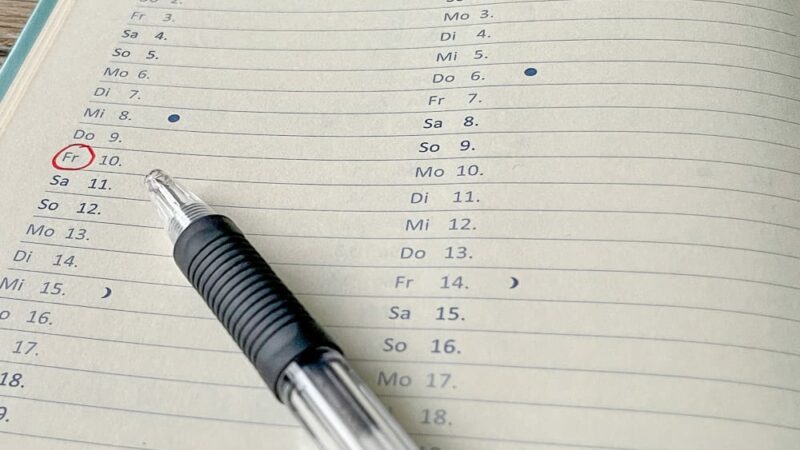 2.
Fr 3.
Sa 4.
So 5.
Mo 6.
Di 7.
Mi 8.
Do 9.
Fr 10.
Sa 11.
So 12.
Mo 13.
Di 14.
Mi 15.
o 16.
17.
18.
9.
Mo 3.
Di 4.
Mi 5.
Do 6.
Fr 7.
Sa 8.
So 9.
Mo 10.
Di 11.
Mi 12.
Do 13.
Fr 14.
Sa 15.
So 16.
Mo 17.
18.